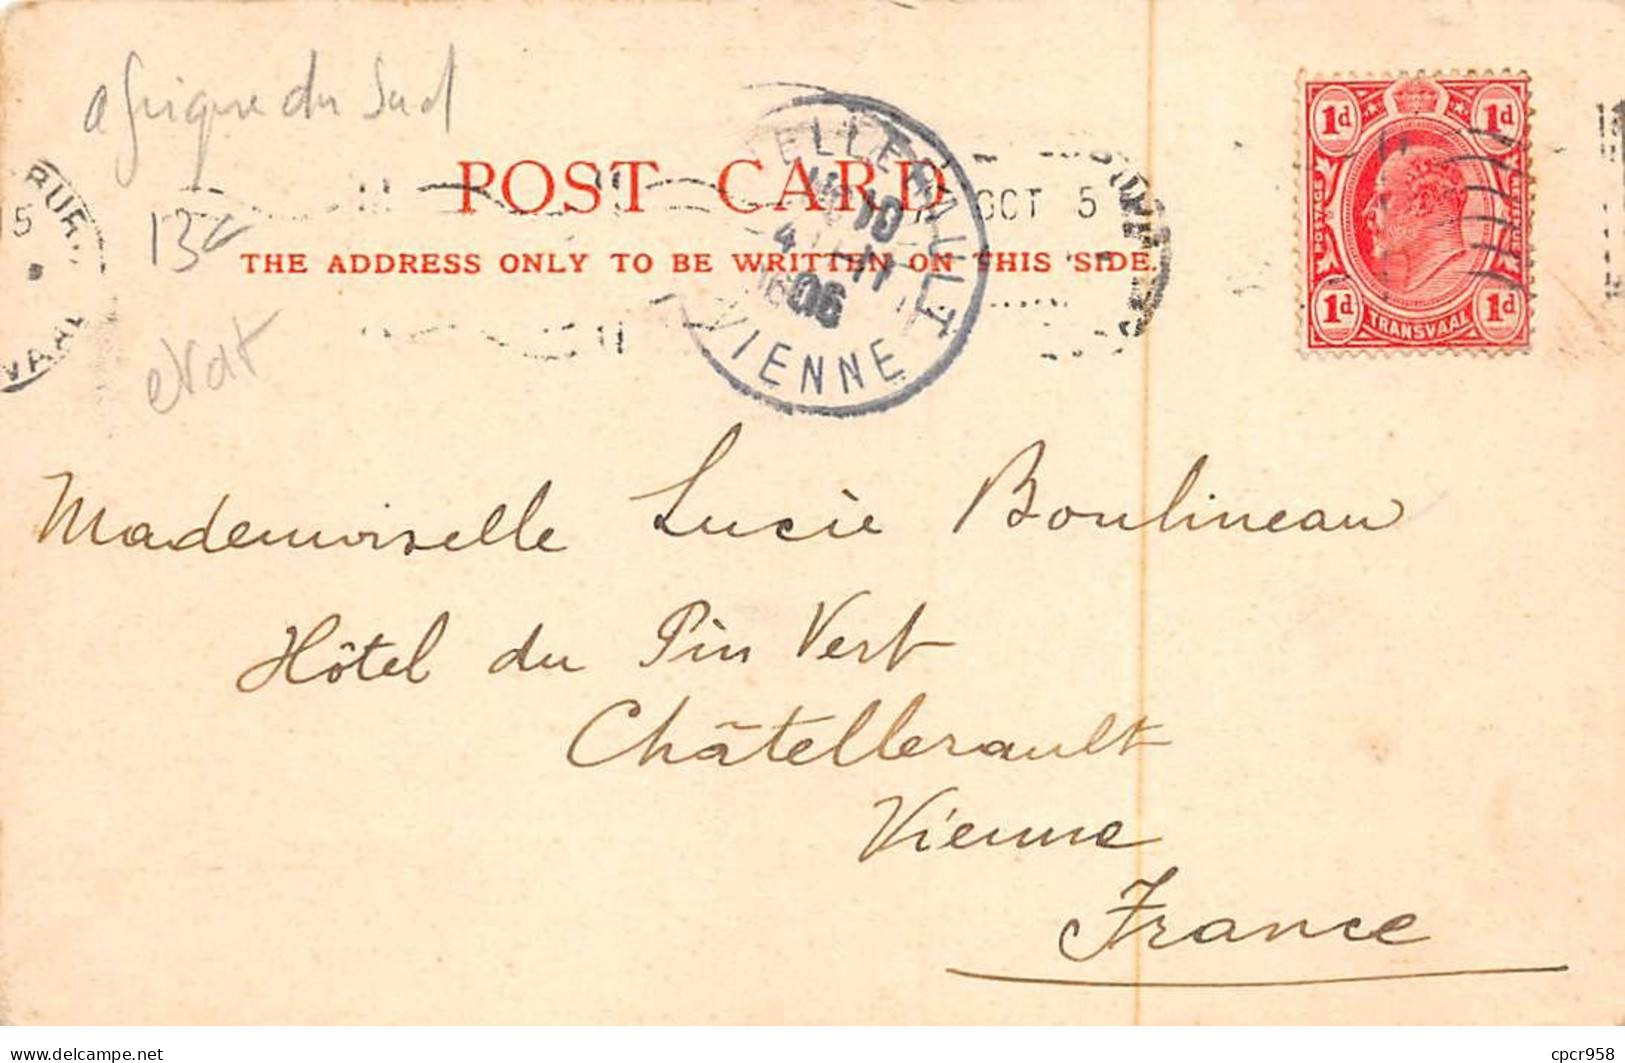 afrique du Sud
POST CARD
13c
OCT 5
THE ADDRESS ONLY TO BE WRITTEN ON THIS SIDE.
etat
BUR
15
VAAL
ELLERAULT
10
4 11
06
VIENNE
1d 1d
POSTAGE
1d TRANSVAAL 1d
Mademoiselle Lucie Boulineau
Hôtel du Pin Vert
Châtellerault
Vienne
France
delcampe.net
cpcr958